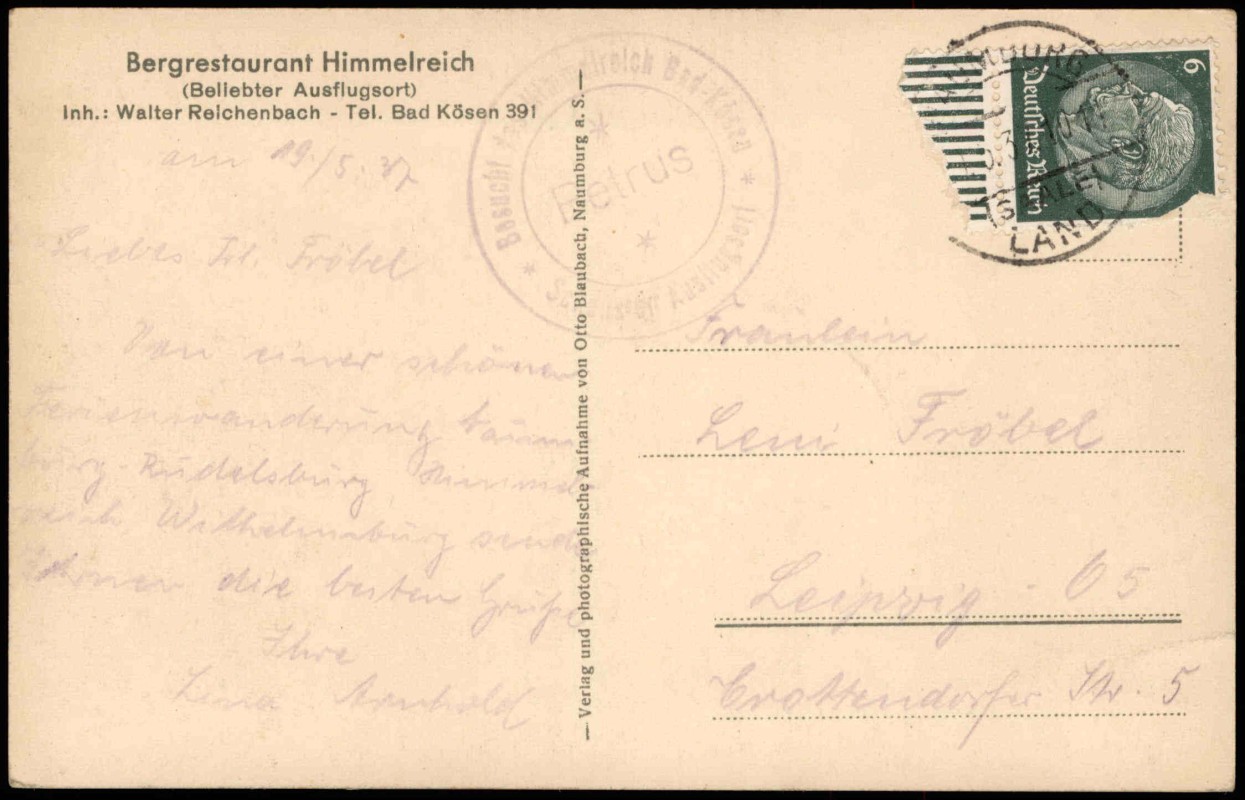 Bergrestaurant Himmelreich
(Beliebter Ausflugsort)
Inh.: Walter Reichenbach - Tel. Bad Kösen 391
am 19./5.37
Liebes Frl. Fröbel
Von einer schönen
Ferienwanderung Naum-
burg-Rudelsburg Himmel-
reich Wilhelmsburg sende
Ihnen die besten Grüße
Ihre
Lina Arnhold
Verlag und photographische Aufnahme von Otto Blaubach, Naumburg a. S.
Besucht das Himmelreich Bad Kösen
Petrus
Schönster Ausflugsort
6
Deutsches Reich
NAUMBURG
(SAALE)
LAND
Fräulein
Leni Fröbel
Leipzig - O 5
Crottendorfer Str. 5